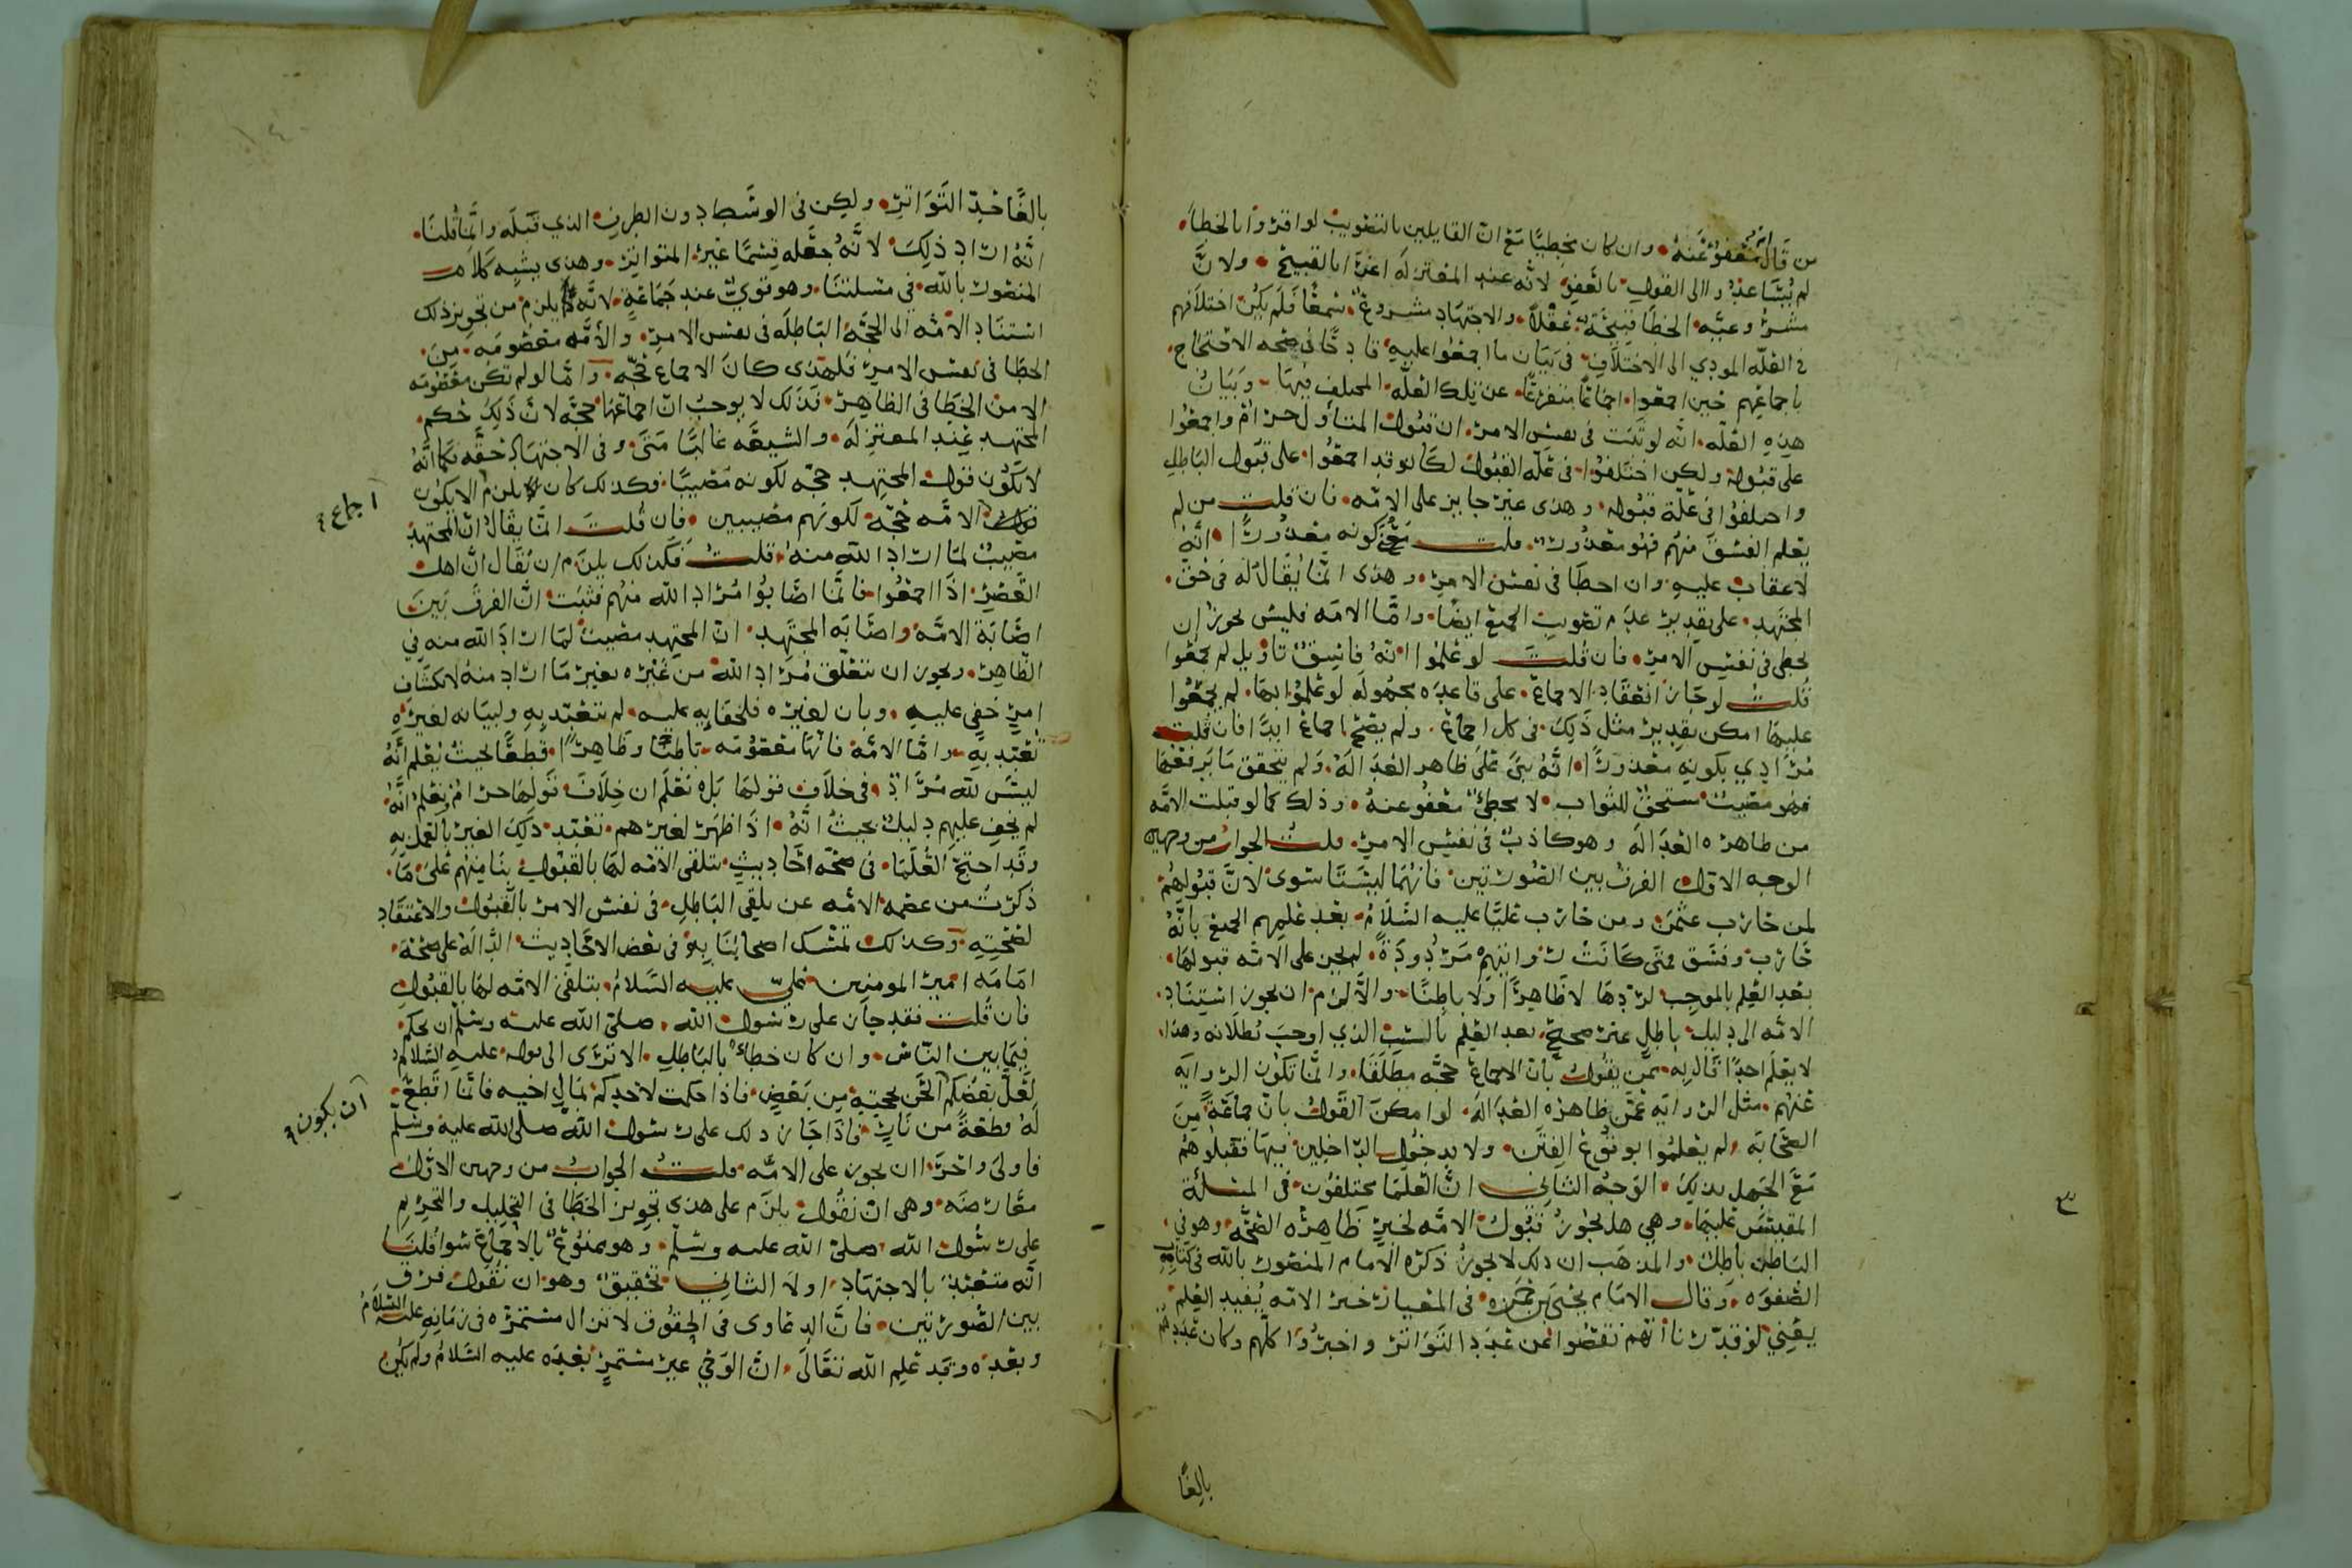 من قال انه معفو عنه وان كان مخطيا مع ان القايلين بالتصويب لو اقروا بالخطا
لم يتساعدوا الى القول بالعفو لانه عند المعتزله اغرا بالقبيح ولان
الخطا قبيحة عقلا والاجتهاد مشروع سمعا فلم يكن اختلافهم
في العله المودي الى الاختلاف في بيان ما اجمعوا عليه قادحا في صحه الاحتجاج
باجماعهم حين اجمعوا اجماعا متفرعا عن تلك العله المختلف فيها وبيان
هذه العله انه لو ثبت في نفس الامر ان قبول المتاول حرام واجمعوا
على قبوله ولكن اختلفوا في عله القبول لكانوا قد اجمعوا على قبول الباطل
واختلفوا في علة قبوله وهذى غير جايز على الامه فان قلت من لم
يعلم الفسق منهم فهو معذور قلت معنى كونه معذورا انه
لا عقاب عليه وان اخطا في نفس الامر وهذى انما يقال له في حق
المجتهد على تقدير عدم تصويب الجميع ايضا واما الامه فليس يجوز ان
يخطي في نفس الامر فان قلت لو علموا انه فاسق تاويل لم يجمعوا
قلت لو جاز انعقاد الاجماع على قاعده مجهوله لو علموا بها لم يجمعوا
عليها امكن تقدير مثل ذلك في كل اجماع ولم يصح اجماع ابدا فان قلت
مرادي بكونه معذورا انه بنى على ظاهر العداله ولم يتحقق ما يرفعها
فهو مصيب مستحق للثواب لا مخطي معفو عنه وذلك كما لو قبلت الامه
من ظاهره العداله وهو كاذب في نفس الامر قلت الجواب من وجهين
الوجه الاول الفرق بين الصورتين فانهما ليستا سوى لان قبولهم
لمن حارب عثمن ومن حارب عليا عليه السلام بعد علمهم الجميع بانه
حارب وفسق متى كانت روايتهم مردودة لم يجز على الامه قبولها
بعد العلم بالموجب لردها لا ظاهرا ولا باطنا والا لزم ان يجوز استناد
الامه الى دليل باطل غير صحيح بعد العلم بالسبب الذي اوجب بطلانه وهذا
لا يعلم احدا قال به ممن يقول بان الاجماع حجه مطلقا وانما تكون الروايه
عنهم مثل الروايه عمن ظاهره العداله لو امكن القول بان جماعة من
الصحابه لم يعلموا بوقوع الفتن ولا بدخول الداخلين فيها فقبلوهم
مع الجهل بذلك الوجه الثاني ان العلما يختلفون في المسئلة
المقيس عليها وهي هل يجوز قبول الامه لخبر ظاهره الصحه وهو في
الباطن باطل والمذهب ان ذلك لا يجوز ذكره الامام المنصور بالله في كتابه
الصفوه وقال الامام يحيى بن حمزه في المعيار خبر الامه يفيد العلم
يعني لو قدرنا انهم نقصوا عن عدد التواتر واخبروا كلهم وكان عددهم
بالغا
بالغا حد التواتر ولكن في الوسط دون الطرف الذي قبله وانما قلنا
انه اراد ذلك لانه جعله قسما غير المتواتر وهذى يشبه كلام
المنصور بالله في مسلتنا وهو قوي عند جماعة لانه يلزم من تجويز ذلك
استناد الامه الى الحجه الباطله في نفس الامر والامه معصومه من
الخطا في نفس الامر فلهذى كان الاجماع حجه واما لو لم تكن معصومه
الا من الخطا في الظاهر فذلك لا يوجب ان اجماعها حجه لان ذلك حكم
المجتهد عند المعتزله والشيعه غالبا متى وفى الاجتهاد حقه فكما انه
لا يكون قول المجتهد حجه لكونه مصيبا فكذلك كان يلزم الا يكون
اجماع
قول الامه حجه لكونهم مصيبين فان قلت انما يقال ان المجتهد
مصيب لما اراد الله منه قلت فكذلك يلزم ان يقال ان اهل
العصر اذا اجمعوا فانما اصابوا مراد الله منهم فثبت ان الفرق بين
اصابة الامه واصابه المجتهد ان المجتهد مصيب لما اراد الله منه في
الظاهر ويجوز ان يتعلق مراد الله من غيره بغير ما اراد منه لانكشاف
امر خفي عليه وبان لغيره فلخفايه عليه لم يتعبد به ولبيانه لغيره
تعبد به واما الامه فانها معصومه باطنا وظاهرا قطعا بحيث يعلم انه
ليس لله مراد في خلاف قولها بل نعلم ان خلاف قولها حرام ونعلم انه
لم يخف عليهم دليل بحيث انه اذا ظهر لغيرهم تعبد ذلك الغير بالعمل به
وقد احتج العلما في صحه احاديث بتلقي الامه لها بالقبول بنا منهم على ما
ذكرت من عصمه الامه عن تلقي الباطل في نفس الامر بالقبول والاعتقاد
لصحته وكذلك تمسك اصحابنا به في بعض الاحاديث الداله على صحة
امامه امير المومنين علي عليه السلام بتلقي الامه لها بالقبول
فان قلت فقد جاز على رسول الله صلى الله عليه وسلم ان يحكم
فيما بين الناس وان كان خطاء بالباطل الا ترى الى قوله عليه السلام
لعل بعضكم الحن بحجته من بعض فاذا حكمت لاحدكم بمال اخيه فانما اقطع
ان يكون
له قطعة من نار فاذا جاز ذلك على رسول الله صلى الله عليه وسلم
فاولى واحرا ان يجوز على الامه قلت الجواب من وجهين الاول
معارضه وهي ان نقول يلزم على هذى تجويز الخطا في التحليل والتحريم
على رسول الله صلى الله عليه وسلم وهو ممنوع بالاجماع سوا قلنا
انه متعبد بالاجتهاد اولا الثاني تحقيق وهو ان نقول فرق
بين الصورتين فان الدعاوى في الحقوق لا تزال مستمره في زمانه عليه السلام
وبعده وقد علم الله تعالى ان الوحي غير مستمر بعده عليه السلام ولم يكن